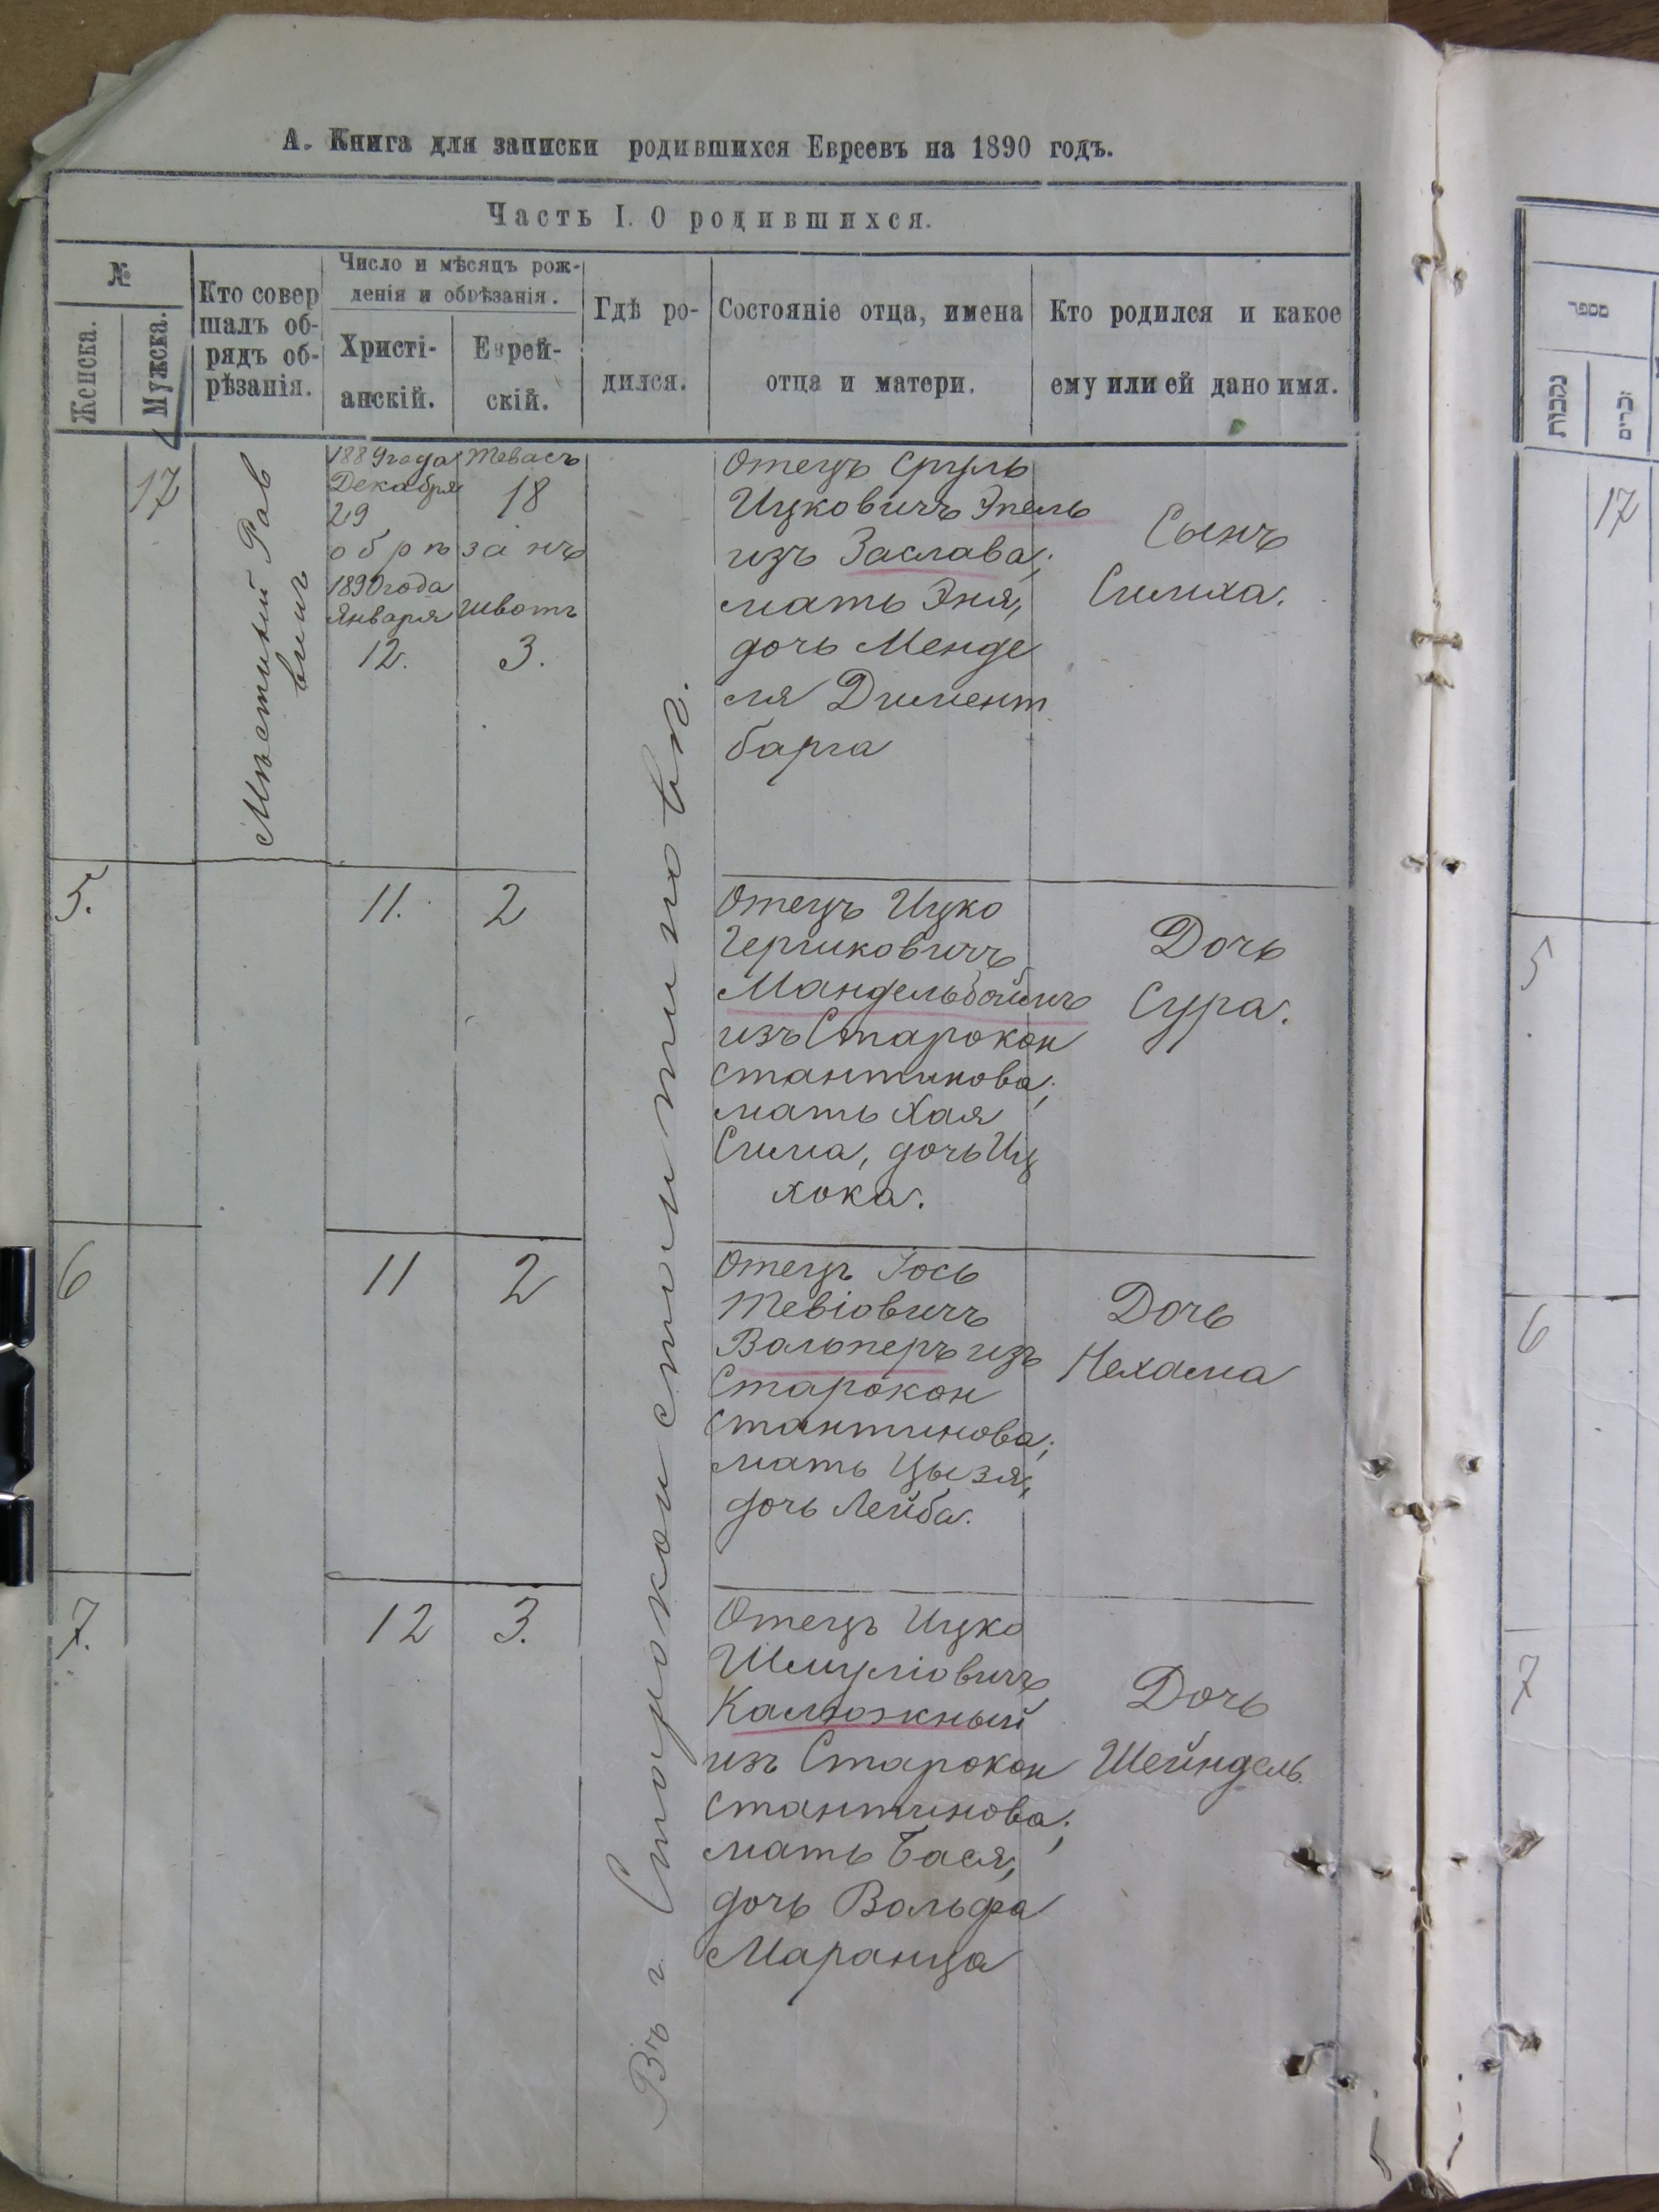 А. Книга для записки родившихся Евреевъ на 1890 годъ.
Часть I. О родившихся.
№
Женска.
Мужска.
Кто совер
шалъ об-
рядъ об-
рѣзанія.
Число и мѣсяцъ рож-
денія и обрѣзанія.
Христі-
анскій.
Еврей-
скій.
Гдѣ ро-
дился.
Состояніе отца, имена
отца и матери.
Кто родился и какое
ему или ей дано имя.
17
Мѣстный Рав
винъ
1889 года
Декабря
29
Тевасъ
18
обрѣзанъ
1890 года
Января
12.
Шватъ
3.
Въ г. Староконстантиновѣ.
Отецъ Сруль
Ицковичъ Эпель
изъ Заслава;
мать Эня,
дочь Менде
ля Димент
барга
Сынъ
Симха.
5.
11.
2
Отецъ Ицко
Гершковичъ
Мандельбоймъ
изъ Старокон
стантинова;
мать Хая
Сима, дочь Иц
хока.
Дочь
Сура.
6
11
2
Отецъ Іось
Тевіовичъ
Вальперъ изъ
Старокон
стантинова;
мать Цызя,
дочь Лейба.
Дочь
Нехама
7.
12
3.
Отецъ Ицко
Шмуліовичъ
Калюжный
изъ Старокон
стантинова;
мать Бася,
дочь Вольфа
Маранца
Дочь
Шейндель.
מספר
נקבות
זכרים
17
5
6
7